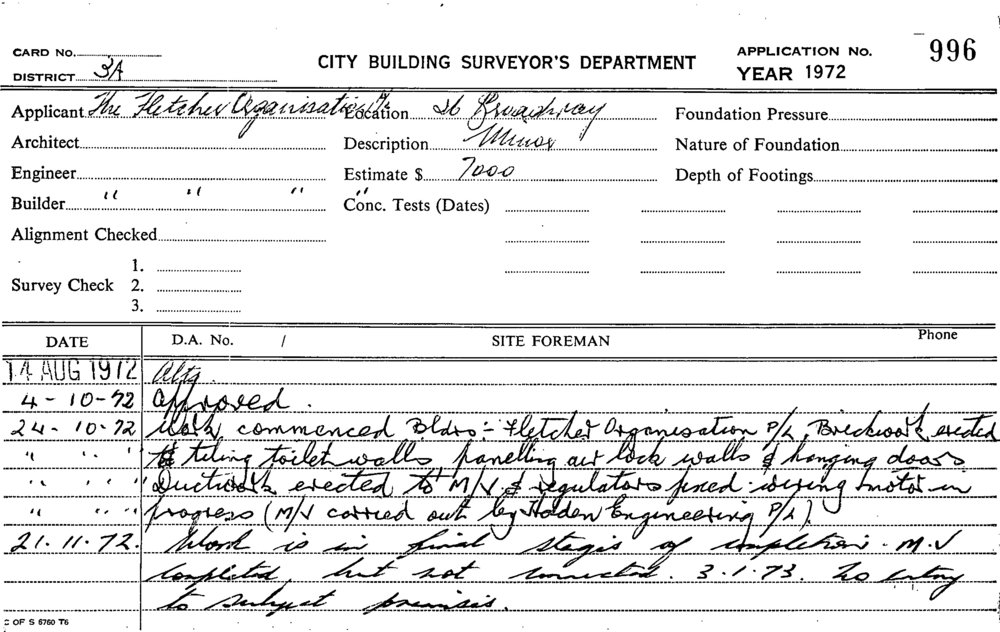 CARD No.
DISTRICT 3A
CITY BUILDING SURVEYOR'S DEPARTMENT
APPLICATION No. 996
YEAR 1972
Applicant The Fletcher Organisation P/L
Location 26 Broadway
Foundation Pressure
Architect
Description Minor
Nature of Foundation
Engineer
Estimate $ 7000
Depth of Footings
Builder " " " "
Conc. Tests (Dates)
Alignment Checked
Survey Check 1.
2.
3.
DATE D.A. No. / SITE FOREMAN Phone
14 AUG 1972 Altn.
4-10-72 Approved.
24-10-72 Work commenced Bldrs:- Fletcher Organisation P/L, Brickwork erected
" " " & tiling toilet walls panelling air lock walls & hanging doors
" " " Ductwork erected to M/V & regulators fixed wiring & motor in
" " " progress (M/V carried out by Haden Engineering P/L).
21.11.72. Work is in final stages of completion. M.V
completed, but not connected. 3.1.73. No entry
to subject premises.
C OF S 6760 T6